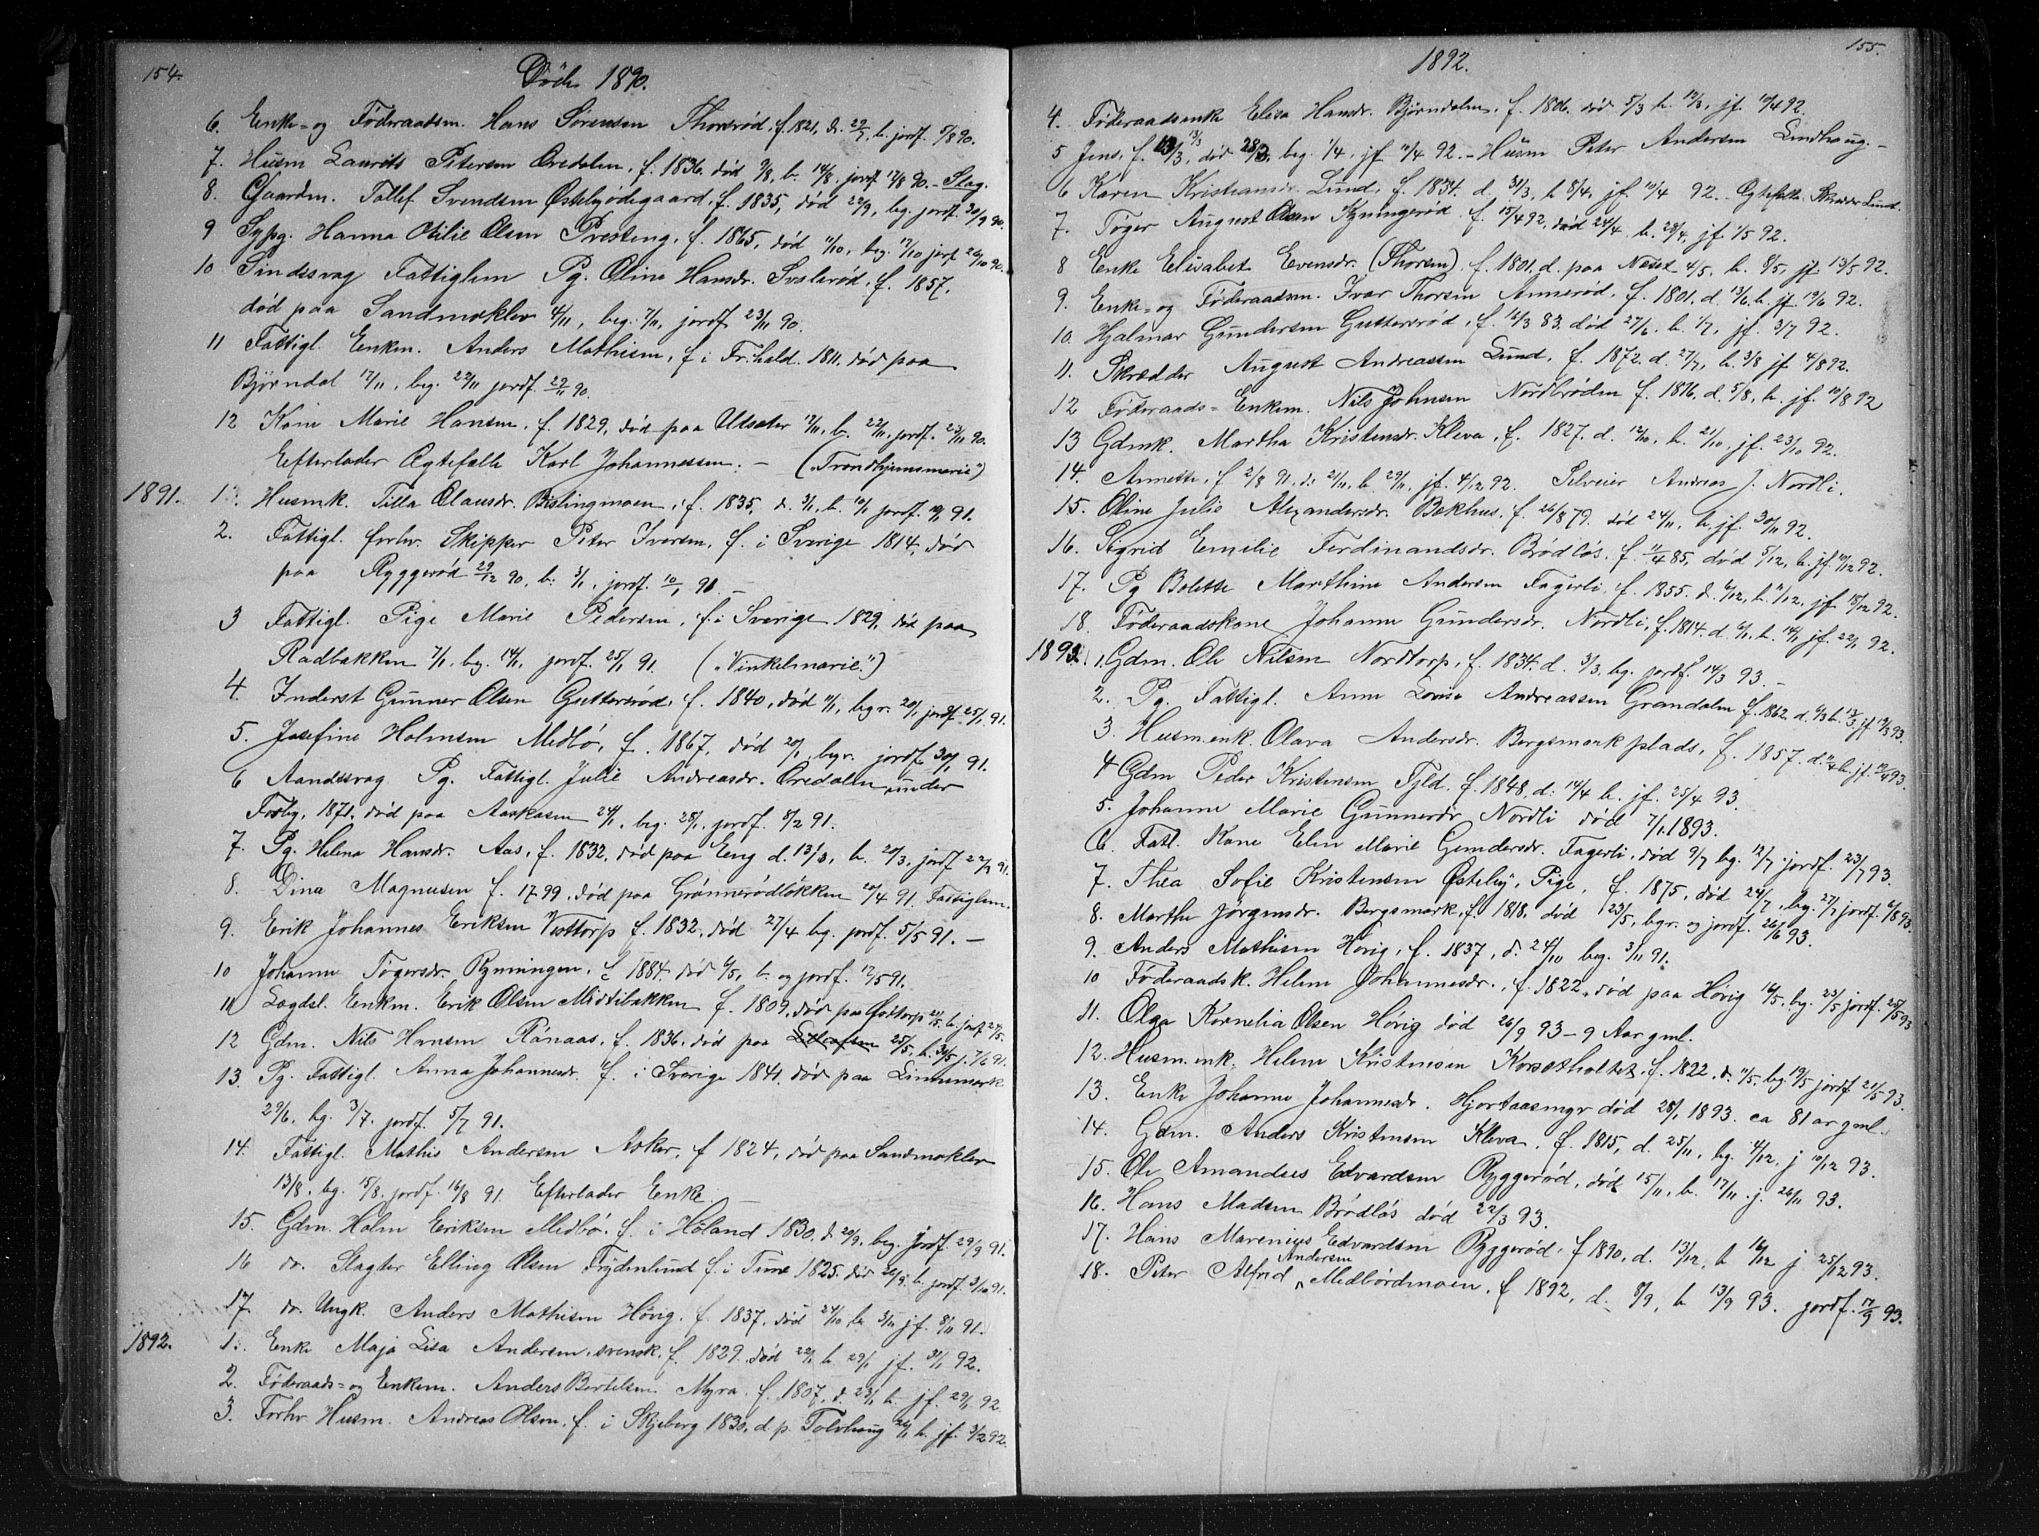 154.
Døde 1890.
6. Enke- og Føderaadsm. Hans Sørensen Thorsrød, f. 1821, d. 29/7, b. jordf. 5/8 90.
7. Husm Laurits Petersen Øredalen, f. 1836. død 9/8, b. 14/8, jordf 17/8 90. - Slag.
8. Gaardm. Tollef Svendsen Østebyødegaard, f. 1835, død 22/9, beg. jordf. 30/9 90.
9 Sypg. Hanna Otilie Olsen Presteng, f. 1865, død 11/10, beg. 17/10 jorf 26/10 90.
10 Sindssvag Fattiglem Pg. Oline Hansdr. f. 1857,
død paa Sandmoklev 4/11, beg. 7/11, jordf 23/11 90.
11 Fattigl. Enkem. Anders Mathisen, f. i Fr.hald. 1811, død paa
Bjørndal 17/11, beg. 22/11 jordf. 29/11 90.
12 Kone Marie Hansen, f. 1829, død paa Utsater 17/11, b. 22/11, jordf. 23/11 90.
Efterlader Ægtefælle Karl Johannessen. - ("Trondhjemsmarie")
1891. 1. Husmk. Tilla Olausdr. Bislingmoen, f. 1835, d. 3/1, b. 10/1 jordf. 10/1 91.
2. Fattigl. forhv. Skipper Peter Iversen, f. i Sverige 1814, død
paa Ryggerød 29/12 90, b. 3/1, jordf. 10/1 91. -
3 Fattigl. Pige Marie Pedersen, f. i Sverige 1829, død paa
Rødbakken 7/1, beg. 14/1, jordf. 25/1 91. ("Vinkelmarie.")
4. Inderst Gunner Olsen Guttersrød, f. 1840, død 11/1, begr. 20/1, jordf. 25/1 91.
5. Josefine Holmsen Medbö, f. 1867, død 20/1, begr. jordf 30/1 91.
6 Aandssvag Pg. Fattigl. Julie Andreasdr. Øredalen under
Froby, 1871, død paa Aarkasen 24/1, beg. 28/1, jordf. 8/2 91.
7. Pg. Helena Hansdr. Aas, f. 1832, død paa Eng d. 13/3, b. 20/3, jordf 22/3 91.
8. Dina Magnusen f. 1799, død paa Grønnerødløkken 20/4 91. Fattiglem.
9. Erik Johannes Eriksen Vesttorp f. 1832, død 27/4 bg. jordf. 5/5 91. -
10 Johanne Togersdr. Rymningen, f. 1884 død 6/5, b. og jordf. 12/5 91.
11 Lægdsl. Enkm. Erik Olsen Midtibakken f. 1809, død paa 21/5 b. jorf 27/5.
12 Gdm. Nils Hansen Rånaas, f. 1836, død paa 25/5, b. 31/5 j. 7/6 91.
13. Pg. Fattigl. Anna Johannesdr. f. i Sverige 1841. død paa Linnemark
29/6, bg. 3/7. jordf. 5/7 91.
14. Fattigl. Mathis Andersen Asker, f 1824, død paa Sandmoklev
13/8, bg. 15/8, jordf. 16/8 91. Efterlader Enke. -
15. Gdm. Holm Eriksen Medbö. f. i Høland 1830, d. 20/9, beg. jordf. 29/9 91.
16 do. Slagter Elling Olsen Frydenlund f. i Tune 1825. død 26/9. b. jordf. 3/10 91.
17. do Ungk. Anders Mathisen Hövig. f. 1837. død 24/10, b. 3/11 jf. 8/11 91.
1892. 1. Enke Maja Lisa Andersen, svensk, f. 1829. død 22/1 b. 29/1 jf. 31/1 92.
2. Føderaads- og Enkem. Anders Bertelsen Myra, f. 1807, d. 23/1, b. jf. 29/1 92
3. Forhv. Husm. Andreas Olsen, f. i Skjeberg 1830, d. p. Tolvhaug 26/1 b. jf. 3/2 92.
155.
1892.
4. Føderaadsenke Elisa Hansdr. Bjørndalen, f. 1806. død 5/3 b. 12/3, jf. 10/4 92.
5 Jens, f. 13/3, 13/3 død 28/3, beg. 1/4, jf 10/4 92. - Husm Peter Andersen Lundhaug. -
6 Karen Kristiansdr. Lund, f. 1834. d. 31/3, b 8/4, jf. 10/4 92. Lund.
7. Töger August Olsen Rymningrød f. 15/4 92, død 24/4, b. 28/4, jf. 1/5 92.
8 Enke Elisabet Evensdr. (Thorsen), f. 1801. d. paa Neset 4/5, b. 8/5, jf. 13/5 92.
9. Enke- og Føderaadsm. Ivar Thorsen Annerød. f. 1801. d. 13/6, b. jf. 19/6 92.
10. Hjalmar Gundersen Guttersrød, f. 16/3 83. død 27/6. b. 1/7, jf. 3/7 92.
11. Skrædder August Andreassen Lund, f. 1872. d. 27/7, b. 3/8 jf 4/8 92.
12 Føderaads- Enkem. Nils Johnsen Nordbrøden f. 1816, d. 5/8, b. jf. 10/8 92
13 Gdmk. Martha Kristensdr. Kleva, f. 1827. d. 12/10, b. 21/10, jf. 23/10 92.
14. Annette, f. 2/8 91. d. 21/11, b. 29/11, jf. 4/12 92. Selveier Andreas J. Nordli.
15. Oline Julie Alexandersdr. Bakhus. f. 26/8 79. død 24/11, b. jf. 30/11 92.
16. Sigrid Emilie Ferdinandsdr. Brødløs. f. 11/4 85, død 5/12, b. jf. 10/12 92.
17. Pg Bolette Marthine Andersen Fagerli, f. 1855. d. 6/12, b. 11/12, jf 18/12 92.
18. Føderaadskone Johanne Gundersdr. Nordli, f. 1814. d. 6/1, b. 14/1 jf. 22/1 92.
1893. 1. Gdm. Ole Nilsen Nordtorp, f. 1834. d. 3/3, bg. jordf. 14/3 93. -
2. Pg. Fattigl. Anne Lovise Andreassen Grandalen f. 1862. d. 6/3 b. 12/3, jf 19/3 93.
3. Husm.enk. Olava Andersdr. Bergsmark plads, f. 1857. d. 11/4 b. jf. 19/4 93.
4 Gdm Peder Kristensen Fjeld. f. 1848. d. 14/4 b. jf. 25/4 93.
5. Johanne Marie Gunnersdr Nordli død 7/1 1893.
6. Fatl. Kone Elen Marie Gundersdr. Fagerli, død 9/7 bg. 12/7. jordf. 23/7 93.
7. Thea Sofie Kristensen Østeby, Pige, f. 1875, død 24/7, beg. 27/7 jordf. 6/8 93.
8. Marthe Jörgensdr. Bergsmark, f. 1818. død 23/5, bgr. og jordf. 26/6 93.
9. Anders Mathisen Hövig, f. 1837, d. 24/10 beg. 3/11 91.
10 Føderaadsk. Helene Johannesdr., f. 1822, død paa Hövig 16/5, bg. 23/5 jordf. 28/5 93
11. Olga Kornelia Olsen Hövig død 26/9 93 - 9 Aar gml.
12. Husm.enk. Helene Kristensen Korsetholtet, f. 1822, d. 11/5, bg. 19/5 jordf 21/5 93.
13. Enke Johanne Johannesdr. Hjortaasmyr død 28/1 1893. ca 81 ar gml.
14. Gdm. Anders Kristensen Kleva, f. 1815, d. 25/11, bg. 4/12, j 10/12 93.
15. Ole Amandus Edvardsen Ryggerød, død 15/11, b. 17/11, j. 26/11 93.
16. Hans Madsen Brödlös død 22/3 93.
17. Hans Marenius Edvardsen Ryggerød, f 1890, d. 13/12, b 16/12 j 25/12 93.
18. Peter Alfred Andersen Medbørdmoen, f 1892, d. 8/9, b 13/9 93. jordf. 17/9 93.